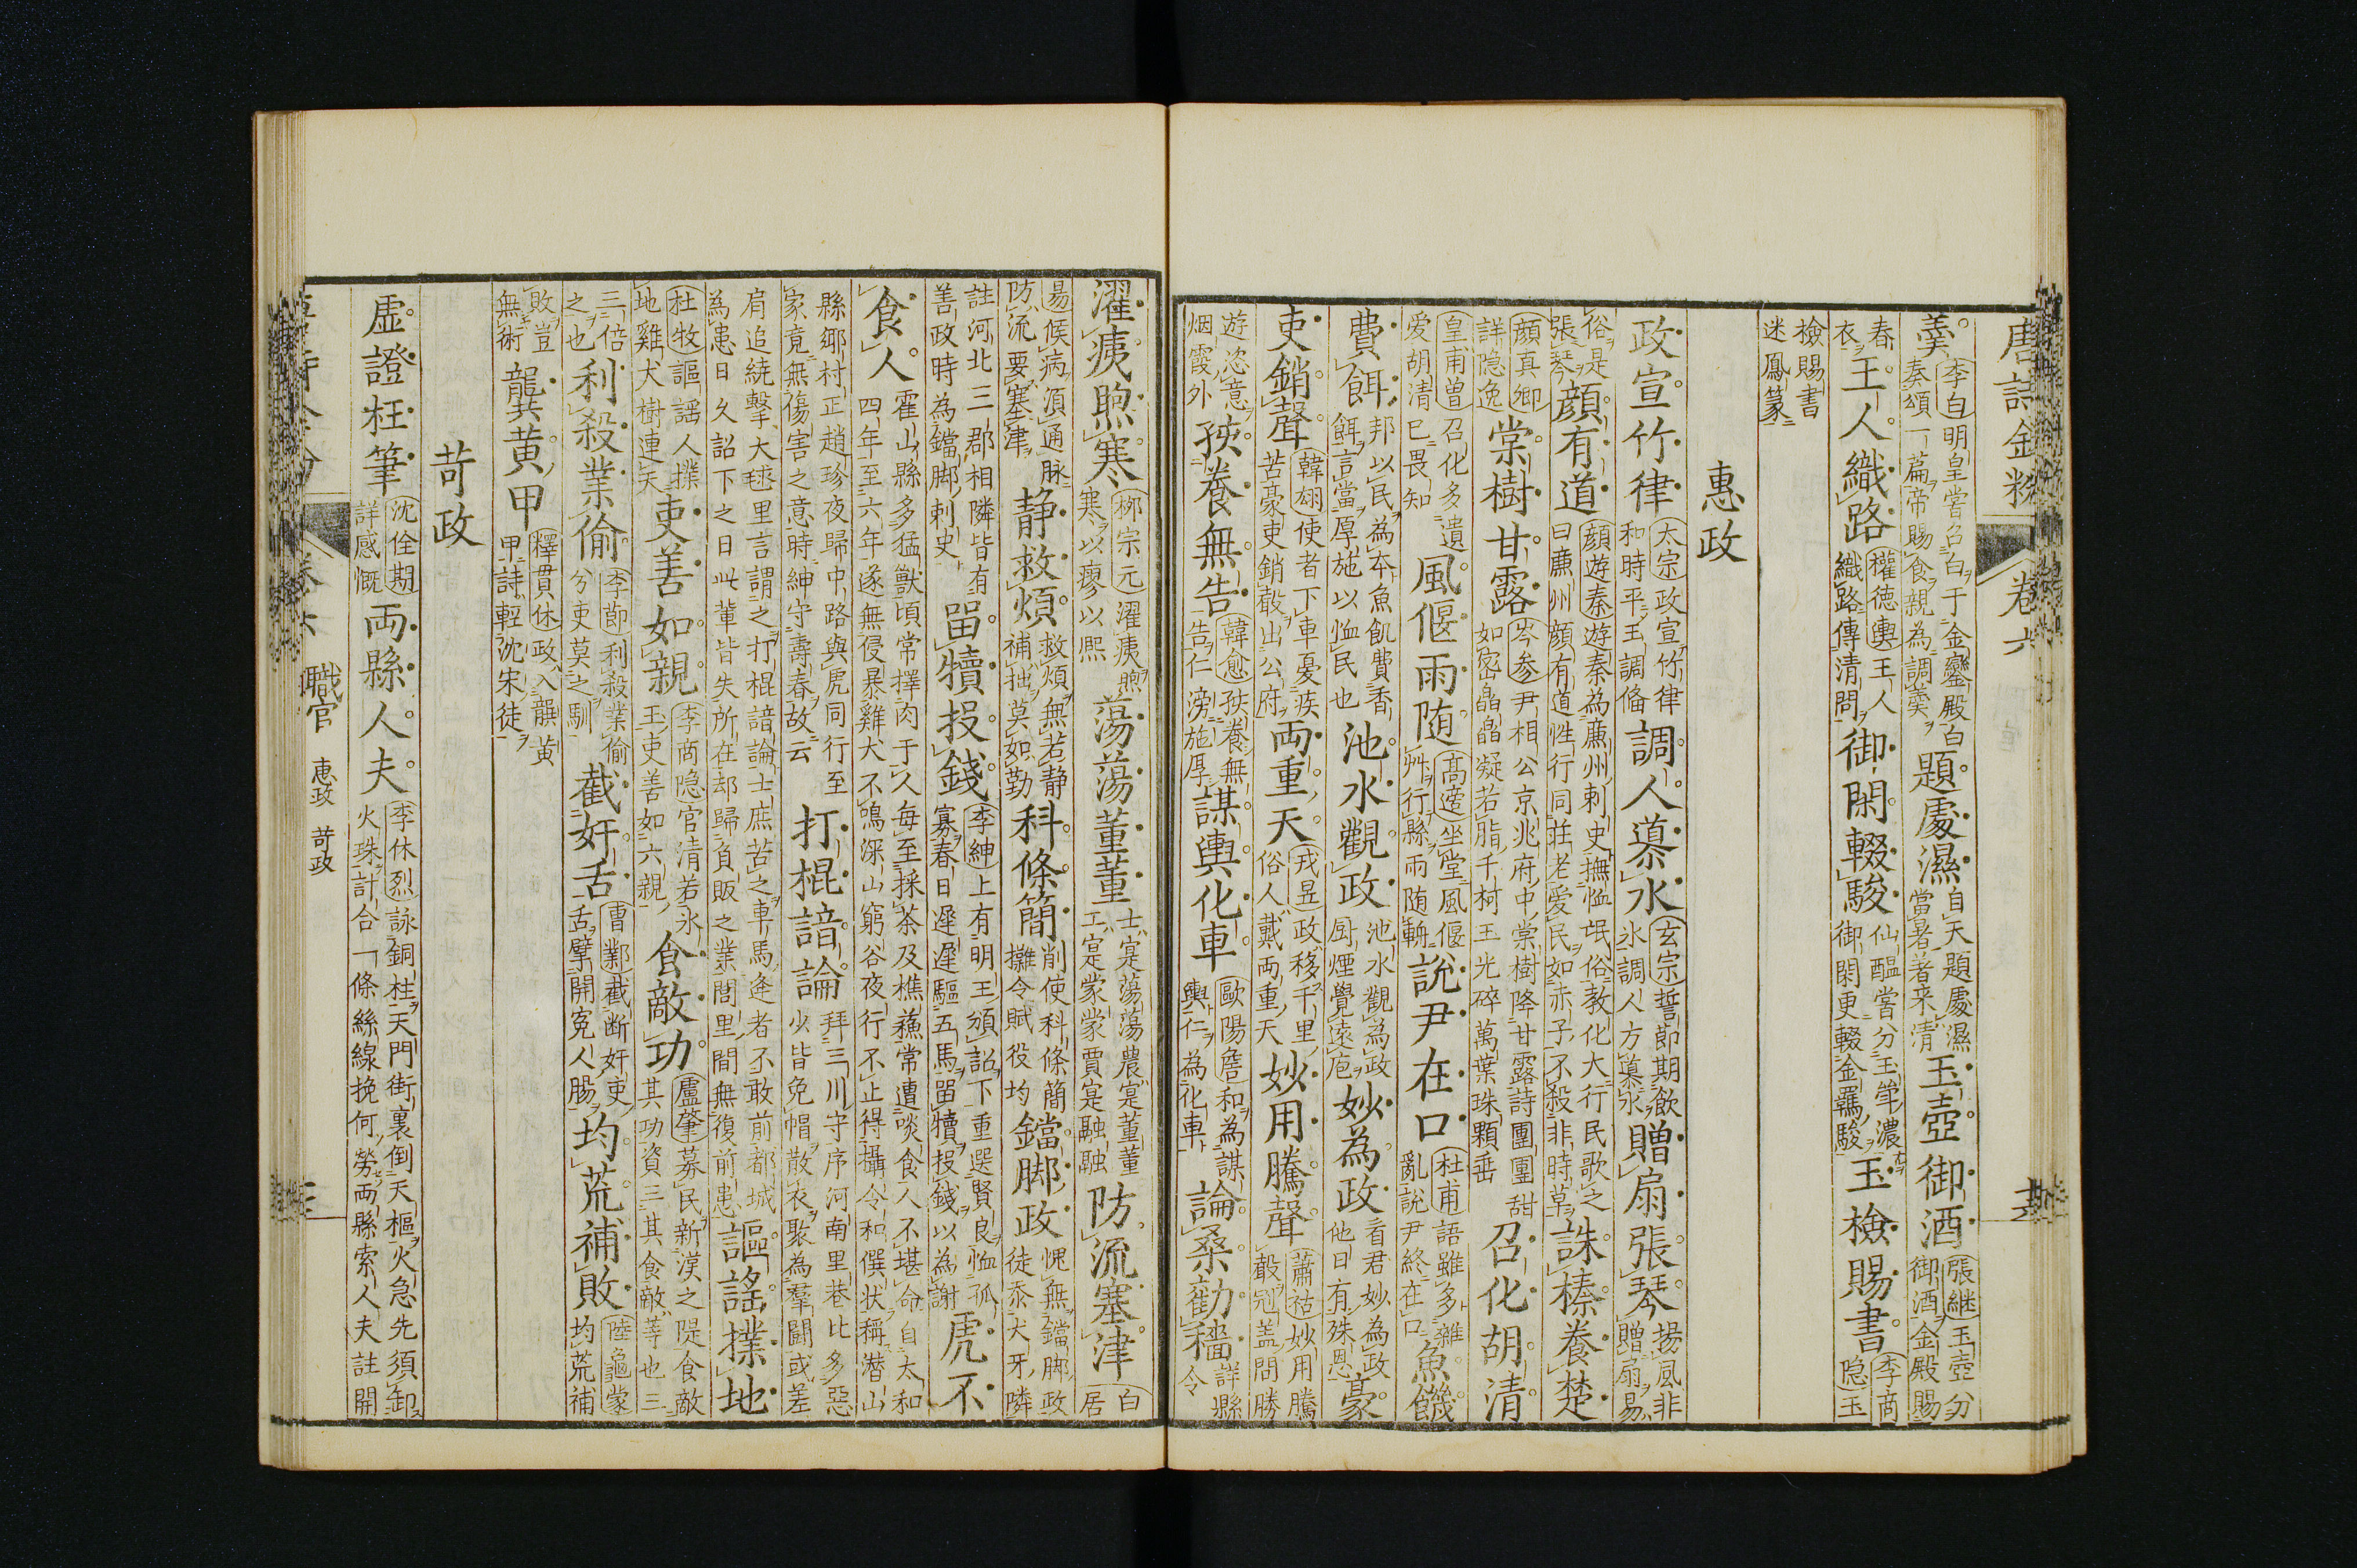 唐詩金粉 卷六
羹李白明皇嘗召白于金鑾殿白奏頌一篇帝賜食親為調羹題處濕自天題處濕當暑著来清玉壺御酒張継玉壺分御酒金殿賜
春衣王人織路權德輿王人織路傳清問御閑輟駿仙醞嘗分玉斝濃御閑更輟金羈駿玉檢賜書李商隐玉
檢賜書迷鳳篆
惠政
政宣竹律太宗政宣竹律和時平玉調偹調人慕水玄宗誓節期飲氷調人方慕水贈扇張琴揚風非贈扇易
俗是張琴顔有道顔遊秦遊秦為廉州刺史撫恤氓俗教化大行民歌之曰廉州顔有道性行同荘老愛民如赤子不殺非時草誅榛養楚
顔真卿詳隐逸棠樹甘露岑参尹相公京兆府中棠樹降甘露詩團團甜如密皛皛凝若脂千柯玉光碎萬葉珠顆垂召化胡清
皇甫曽召化多遺爱胡清已畏知風偃雨随髙適坐堂風偃艸行縣雨随輈說尹在口杜甫語雖多雜亂說尹終在口魚饑
費餌邦以民為本魚飢費香餌言當厚施以恤民也池水觀政池水觀為政厨煙覺遠庖妙為政看君妙為政他日有殊恩豪
吏銷聲韓翃使者下車憂疾苦豪吏銷聲出公府両重天戎昱政移千里俗人戴両重天妙用騰聲蕭祜妙用騰聲冠蓋間勝
遊恣意烟霞外㷀養無告韓愈㷀養無告仁滂施厚謀輿化車歐陽詹和為謀輿仁為化車論桑勸穡詳縣令
濯痍煦寒柳宗元濯痍煦寒以瘳以熙蕩蕩蕫蕫士寔蕩蕩農寔蕫蕫工寔蒙蒙賈寔融融防流塞津白居
易候病湏通脉防流要塞津静救煩救煩無若静補拙莫如勤科條簡削使科條簡攤令賦役均鐺脚政愧無鐺脚政徒忝犬牙隣
註河北三郡相隣皆有善政時為鐺脚刺史畱犢投錢李紳上有明王頒詔下重選賢良恤孤寡春日遲遲驅五馬畱犢投錢以為謝虎不
食人霍山縣多猛獣頃常擇肉于人毎至採茶及樵蘓常遭啖食人不堪命自太和四年至六年遂無侵暴雞犬不鳴深山窮谷夜行不止得攝令和僎状稱潜山
縣鄉村正趙珍夜歸中路與虎同行至家竟無傷害之意時紳守壽春故云打棍諳論拜三川守序河南里巷比多惡少皆免帽散衣聚為羣鬭或差
肩追繞擊大毬里言謂之打棍諳論士庶苦之車馬逢者不敢前都城為患日久詔下之日此軰皆失所在却歸負販之業閭里間無復前患謳謠撲地
杜牧謳謡人撲地雞犬樹連天吏善如親李商隐官清若氷玉吏善如六親食敵功盧肇募民新漢之隄食敵其功資三其食敵䓁也三
三倍之也利殺業偷李郎利殺業偷兮吏莫之馴截奸舌曹鄴截断奸吏舌擘開寃人腸均荒補敗陸龜蒙均荒補
敗豈無術龔黄甲釋貫休政入龔黄甲詩輕沈宋徒
苛政
虚證枉筆沈佺期詳感慨両縣人夫李休烈詠銅柱天門街裏倒天樞火急先須卸火珠計合一條絲線挽何勞両縣索人夫註開
卷六 職官 惠政 苛政